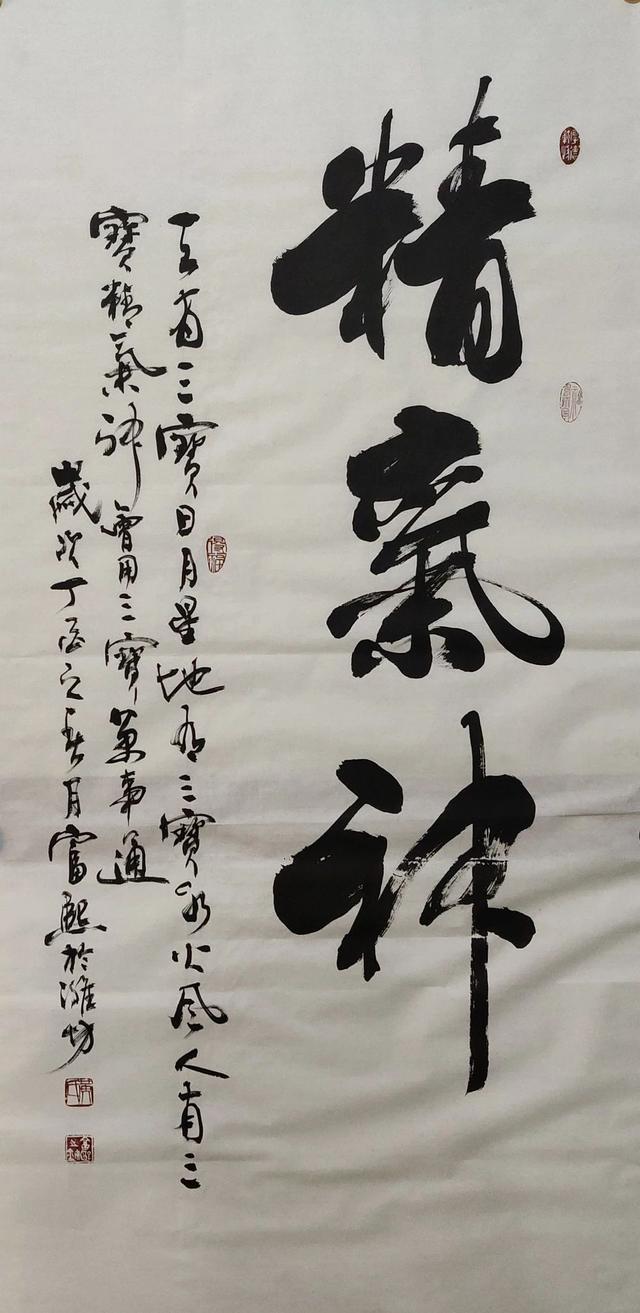 精氣神
天有三寶日月星地有三寶水火風人有三
寶精氣神會用三寶萬事通
歲次丁酉之春月富熙於濰坊